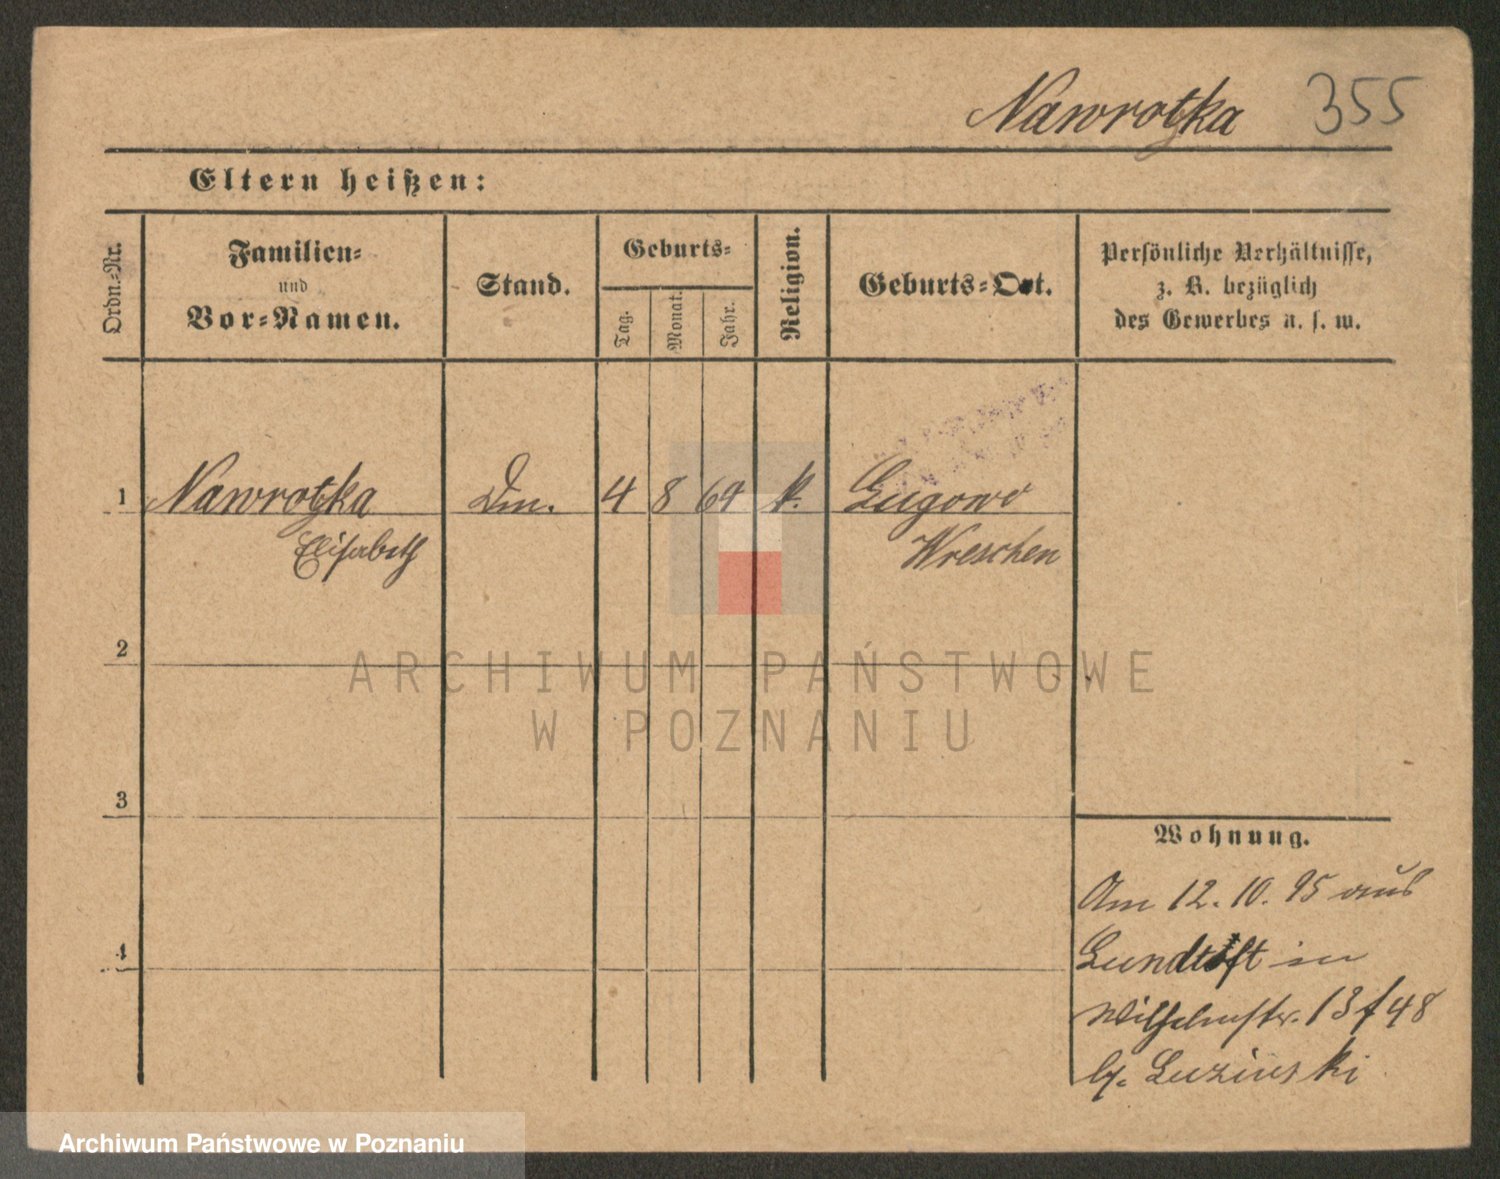 Nawrotzka 355
Eltern heißen:
Ordn.-Nr.
Familien-
und
Vor-Namen.
Stand.
Geburts-
Tag.
Monat.
Jahr.
Religion.
Geburts-Ort.
Persönliche Verhältnisse,
z. B. bezüglich
des Gewerbes u. s. w.
1 Nawrotzka 4 8 69 k. Gugowo
Elisabeth Wreschen
2
3
4
Wohnung.
Am 12. 10. 95 aus
in
Wilhelmstr. 13 f 48
Luzinski
ARCHIWUM PAŃSTWOWE
W POZNANIU
Archiwum Państwowe w Poznaniu